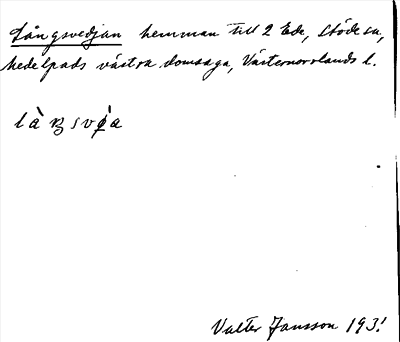 Långsvedjan hemman till 2 Ede, Stöde sn,
Medelpads västra domsaga, Västernorrlands l.
Valter Jansson 193!